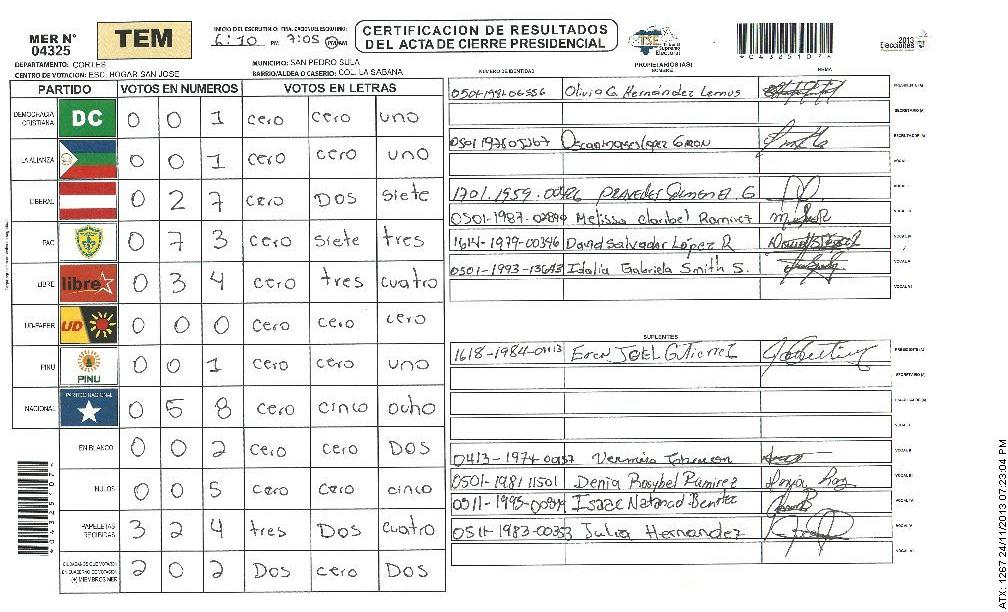 MER N° 04325
TEM
INICIO DEL ESCRUTINIO: 6:10 PM
7:05 PM
CERTIFICACION DE RESULTADOS
DEL ACTA DE CIERRE PRESIDENCIAL
TSE Tribunal Supremo Electoral
*04325107*
2013 Elecciones
DEPARTAMENTO: CORTES
MUNICIPIO: SAN PEDRO SULA
CENTRO DE VOTACION: ESC. HOGAR SAN JOSE
BARRIO/ALDEA O CASERIO: COL. LA SABANA
PARTIDO VOTOS EN NUMEROS VOTOS EN LETRAS
DEMOCRACIA CRISTIANA DC 0 0 1 cero cero uno
LA ALIANZA 0 0 1 cero cero uno
LIBERAL 0 2 7 cero Dos siete
PAC 0 7 3 cero siete tres
LIBRE libre 0 3 4 cero tres cuatro
UD-FAPER UD 0 0 0 cero cero cero
PINU PINU 0 0 1 cero cero uno
NACIONAL PARTIDO NACIONAL 0 5 8 cero cinco ocho
EN BLANCO 0 0 2 cero cero Dos
NULOS 0 0 5 cero cero cinco
PAPELETAS RECIBIDAS 3 2 4 tres Dos cuatro
CIUDADANOS QUE VOTARON EN CUADERNO DE VOTACION (+) MIEMBROS MER 2 0 2 Dos cero Dos
*04325107*
PROPIETARIOS (AS)
NUMERO DE IDENTIDAD NOMBRE FIRMA
Olivia G. Hernández Lemus PRESIDENTE (A)
SECRETARIO (A)
ESCRUTADOR (A)
VOCAL I
1701-1959- G VOCAL II
0501-1987- Melissa Claribel Ramirez VOCAL III
1614-1979-00396 David Salvador López R VOCAL IV
0501-1993-13693 Idalia Gabriela Smith S. VOCAL V
VOCAL VI
SUPLENTES
1618-1984-01113 JOEL Gutierrez PRESIDENTE (A)
SECRETARIO (A)
ESCRUTADOR (A)
VOCAL I
0413-1974- VOCAL II
0501-1981 11501 Denia Rosybel Ramirez VOCAL III
Isaac VOCAL IV
0511-1983-00353 Julia Hernandez VOCAL V
VOCAL VI
ATX: 1267 24/11/2013 07:23:04 PM